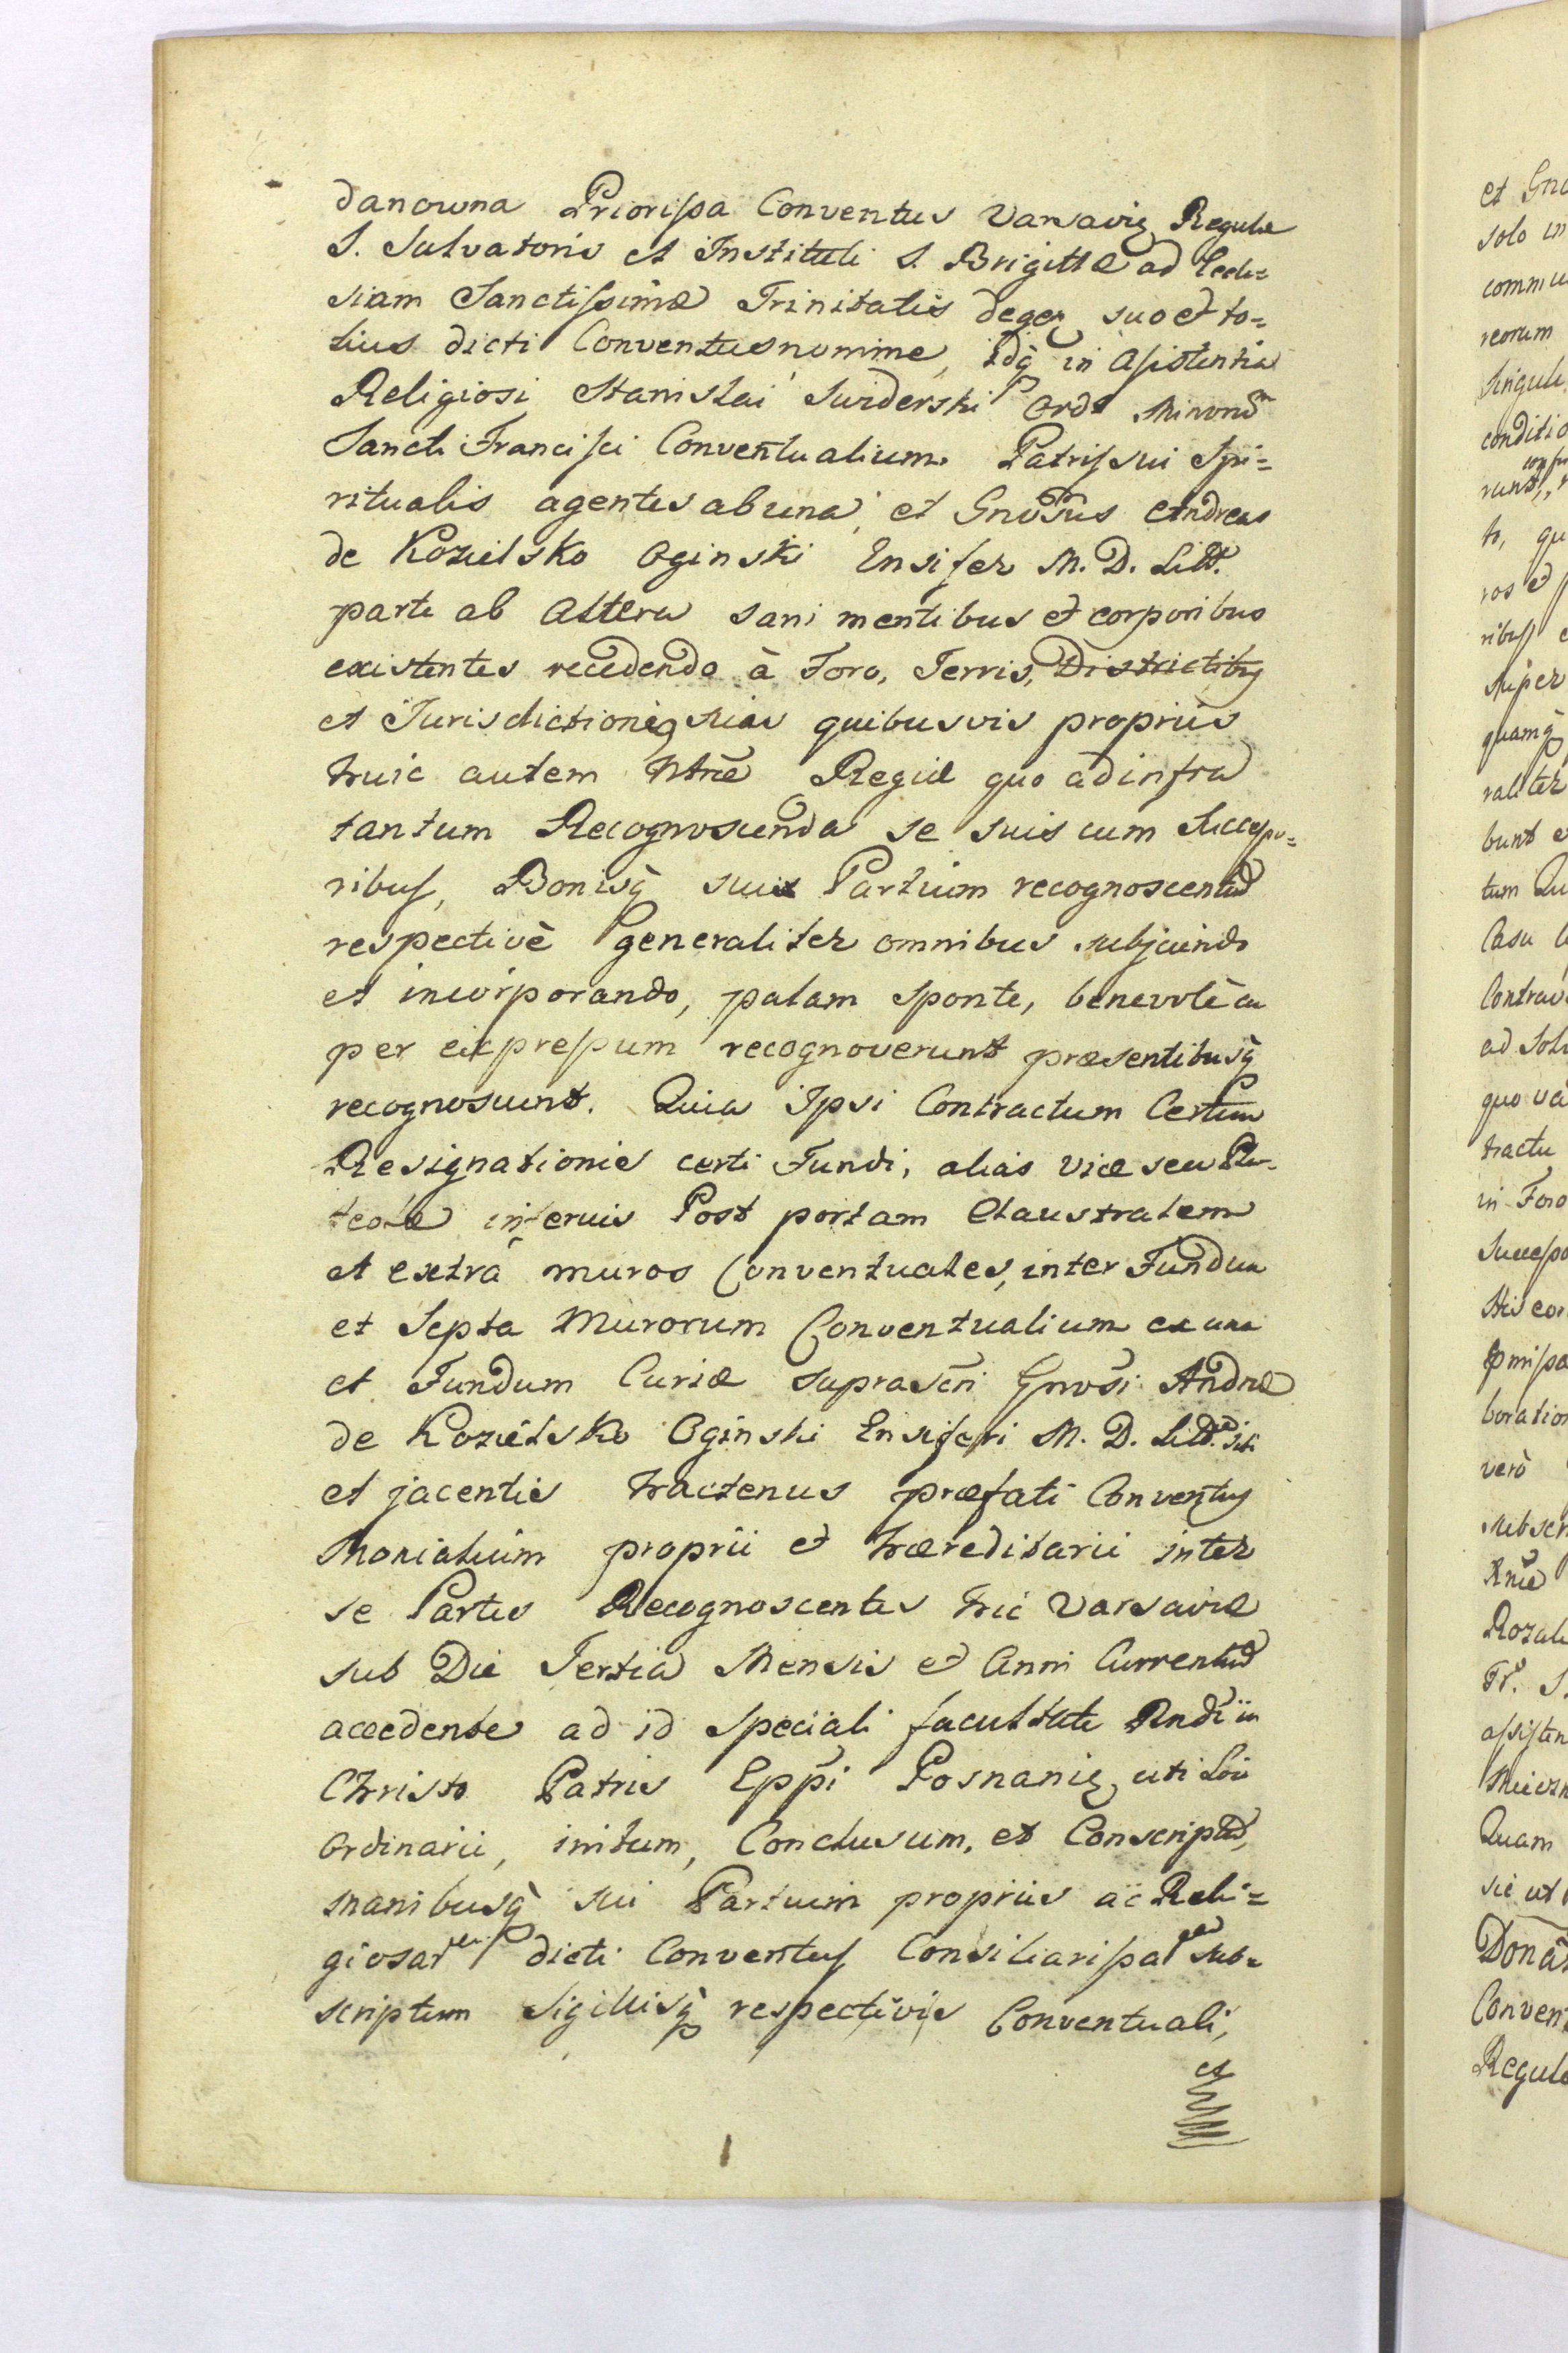 danowna Priorissa Conventus Varsavię Regulæ
S. Salvatoris et Instituti S. Brigittæ ad Eccle=
siam Sanctissimæ Trinitatis degeñ suo et to=
tius dicti Conventus nomine, idq̃ in assistentia
Religiosi Stanislai Swiderski Ord: Minorũ
Sancti Francisci Conventualium Patris sui Spi=
ritualis agentes ab una, et Gnosus Andreas
de Kozielsko Oginski Ensifer M. D. Litt.
parte ab altera sani mentibus et corporibus
existentes recedendo à Foro, Terris, Districtibg
et Jurisdictionibg suis quibusvis propriis
huic autem Ntræ Regiæ quo ad infra
tantum Recognoscenda se suis cum Successo=
ribus, Bonisq̃ suis Partium recognoscentiũ
respectivè generaliter omnibus subjiciendo
et incorporando, palam sponte, benevolè ac
per expressum recognoverunt præsentibusq̃
recognoscunt. Quia Ipsi Contractum Certum
Resignationis certi Fundi, alias viæ seu Pla-
teolæ inferius Post portam Claustralem
et extrà muros Conventuales, inter Fundum
et Septa Murorum Conventualium ex una
et Fundum Curiæ suprascñi Gnosi Andræ
de Kozielsko Oginski Ensiferi M. D. Litt. siti
et jacentis hactenus præfati Conventus
Monialium proprii et hæreditarii inter
se Partes Recognoscentes hic Varsaviæ
sub Die Tertia Mensis et Anni Currentiũ
accedente ad id speciali facultate Rndi in
Christo Patris Eppi Posnanię uti Loci
Ordinarii, initum, Conclusum, et Conscriptũ,
manibusq̃ sui Partium propriis ac Reli=
giosar dicti Conventus Consiliarissar sub=
scriptum Sigillisq̃ respectivis Conventuali,
et